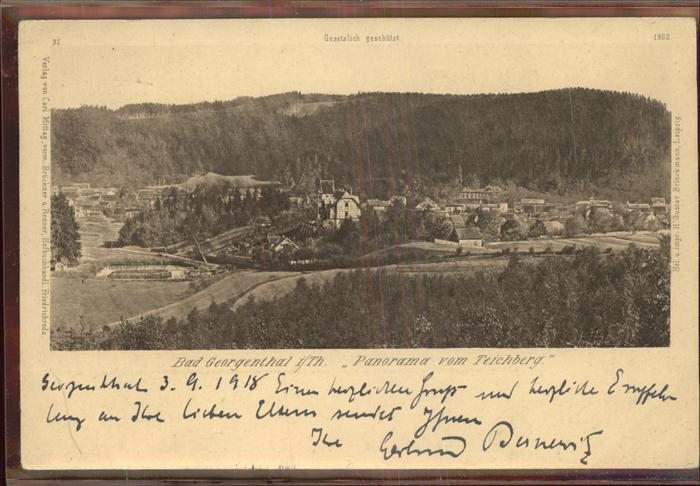 37.
Gesetzlich geschützt.
1902.
Verlag von Carl Mittag, vorm. Brückner u. Renner, Hofbuchhandl. Friedrichroda.
Hel. u. impr. H. Gustav Brinckmann, Leipzig
Bad Georgenthal i/Th. „Panorama vom Teichberg."
Georgenthal 3. 9. 1918 Einen herzlichen Gruß und herzliche Empfeh
lung an Ihre lieben Eltern sendet Ihnen
Ihr Bernewitz